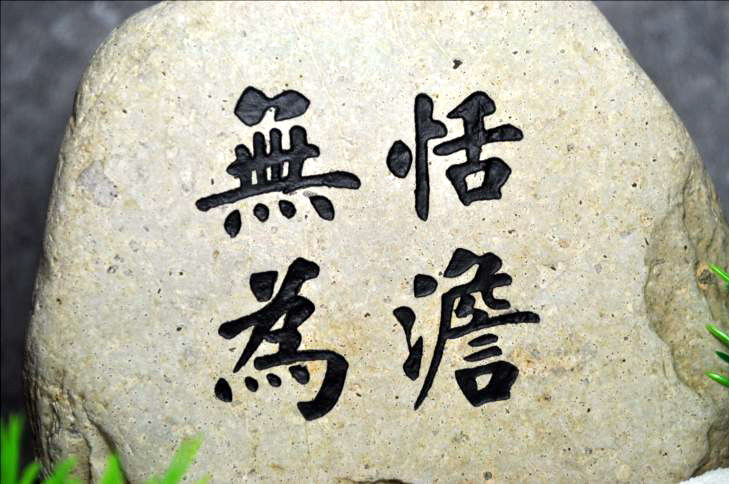 恬澹
無為